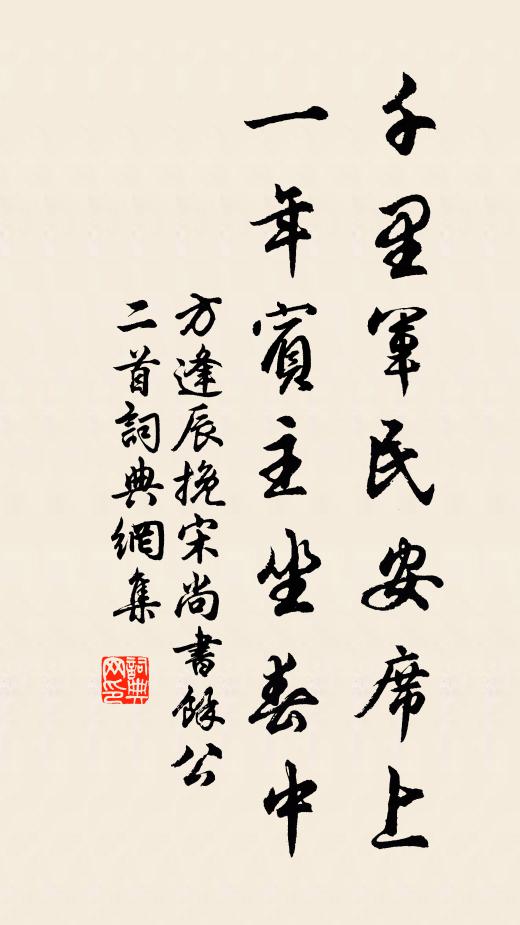 千里軍民安席上
一年賓主坐春中
方逢辰挽宋尚書餘公
二首詞典網集
詞典网印